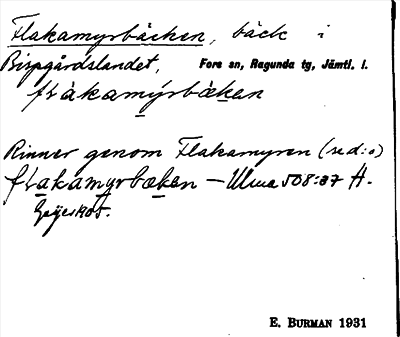 Flakamyrbäcken, bäck i
Bispgårdslandet, Fors sn, Ragunda tg, Jämtl. l.
flákamýrbæken
Rinner genom Flakamyren (se d:o)
flakamyrbækən – Ulma 508:37 A.
E. BURMAN 1931